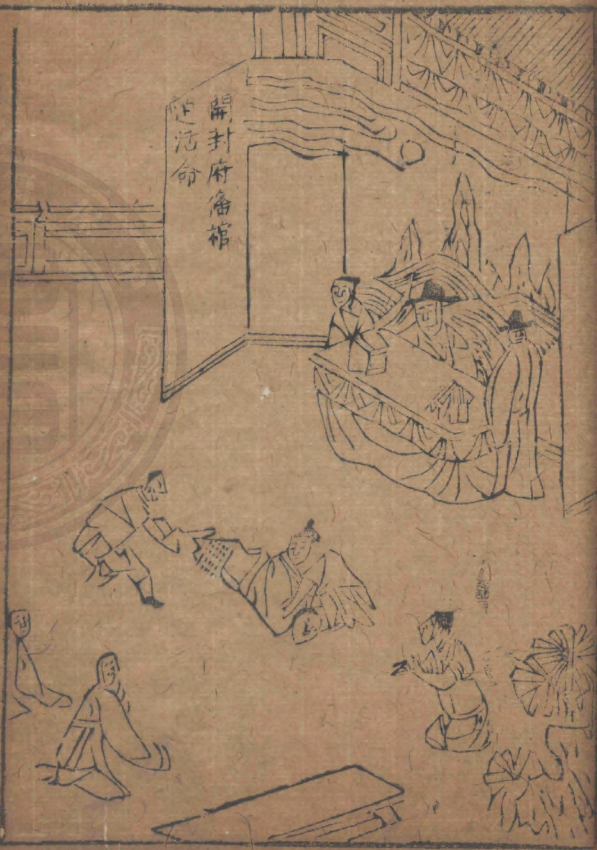 開封府備棺
追活命